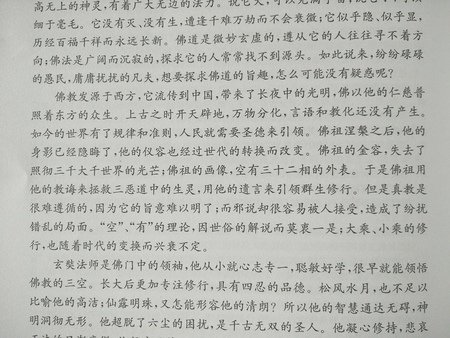 高无上的神灵，有着广大无边的法力。
细于毫毛。它没有灭、没有生，遭逢千难万劫而不会衰微；它似乎隐、似乎显，
历经百福千祥而永远长新。佛道是微妙玄虚的，遵从它的人往往寻不着方
向；佛法是广阔而沉寂的，探求它的人常常找不到源头。如此说来，纷纷碌碌
的愚民，庸庸扰扰的凡夫，想要探求佛道的旨趣，怎么可能没有疑惑呢？
佛教发源于西方，它流传到中国，带来了长夜中的光明，佛以他的仁慈普
照着东方的众生。上古之时开天辟地，万物分化，言语和教化还没有产生。
如今的世界有了规律和准则，人民就需要圣德来引领。佛祖涅槃之后，他的
身影已经隐晦了，他的仪容也经过世代的转换而改变。佛祖的金容，失去了
照彻三千大千世界的光芒；佛祖的画像，空有三十二相的外表。于是佛祖用
他的教诲来拯救三恶道中的生灵，用他的遗言来引领群生修行。但是真教是
很难遵循的，因为它的旨意难以明了；而邪说却很容易被人接受，造成了纷扰
错乱的局面。“空”、“有”的理论，因世俗的解说而莫衷一是；大乘、小乘的修
行，也随着时代的变换而兴衰不定。
玄奘法师是佛门中的领袖，他从小就心志专一，聪敏好学，很早就能领悟
佛教的三空。长大后更加专注修行，具有四忍的品德。松风水月，也不足以
比喻他的高洁；仙露明珠，又怎能形容他的清朗？所以他的智慧通达无碍，神
明洞彻无形。他超脱了六尘的困扰，是千古无双的圣人。他凝心修持，悲哀